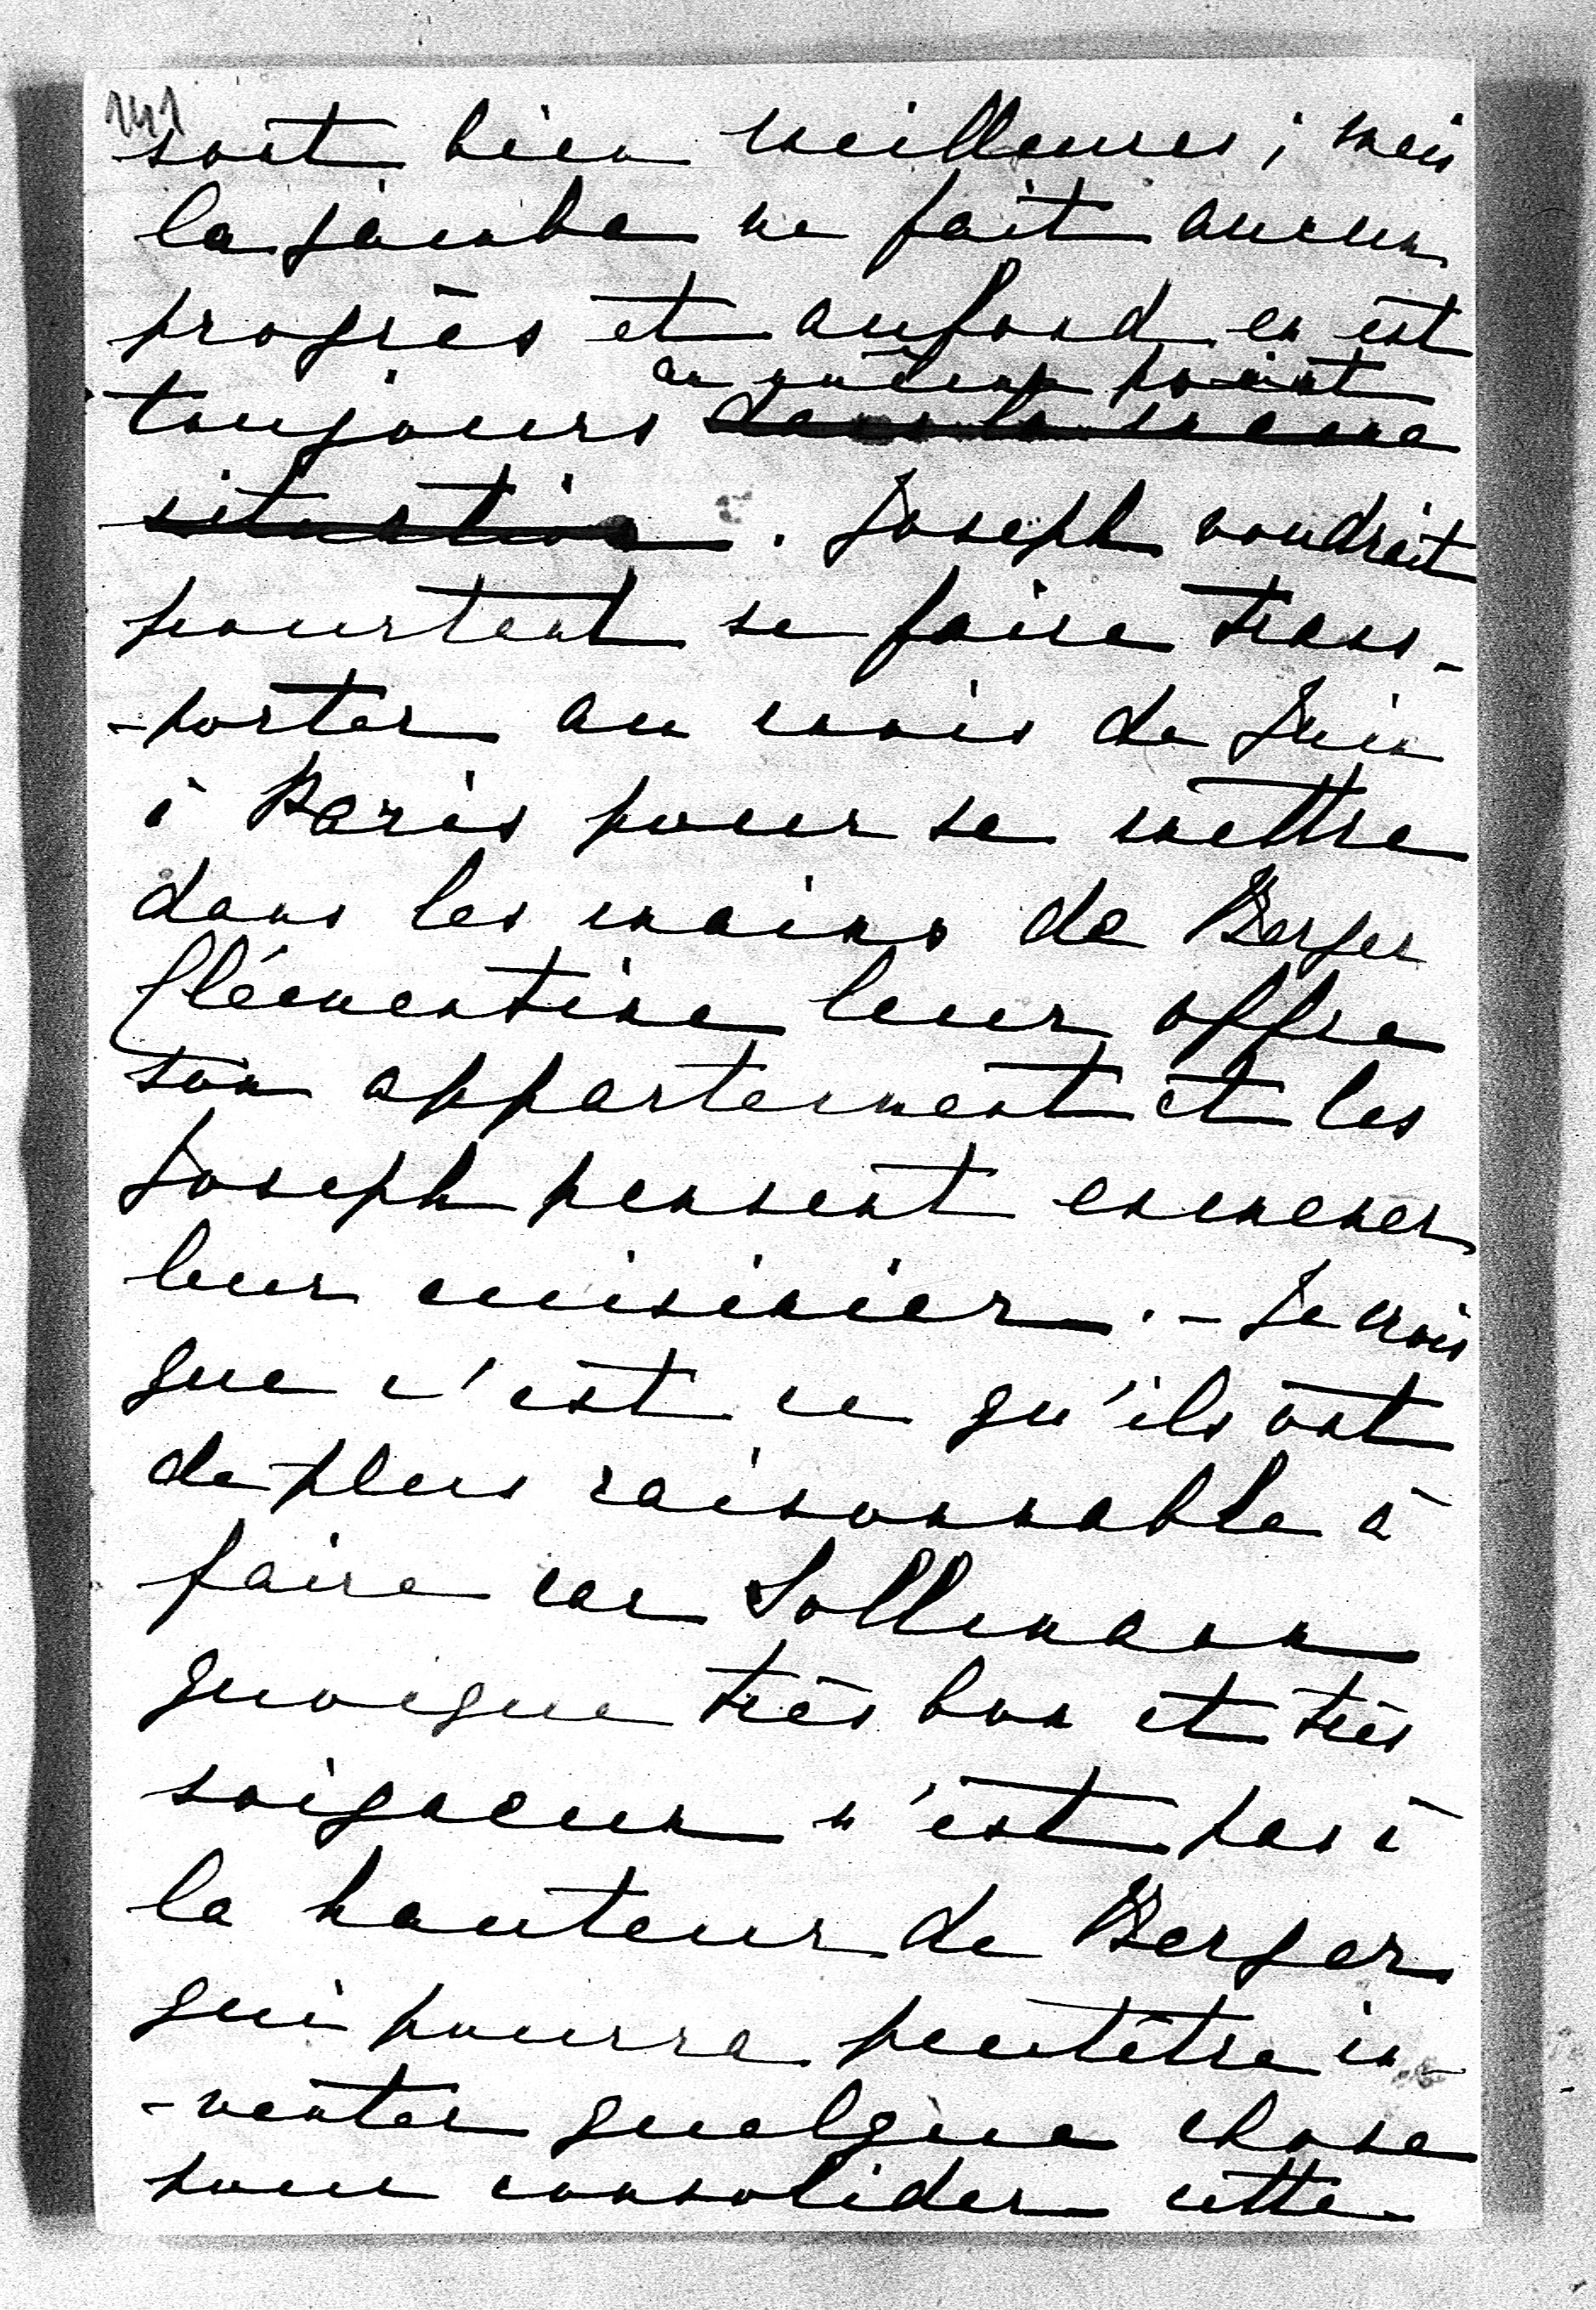 141
sont bien meilleures ; mais
la jambe ne fait aucun
progrès et aufond en est
au même point
toujours dans la même
situation . Joseph voudrait
pourtant se faire trans-
-porter au mois de Juin
à Paris pour se mettre
dans les mains de Berger
Clémentine leur offre
son appartement et les
Joseph pensent emmener
leur cuisinier . - Je crois
que c'est ce qu'ils ont
de plus raisonnable à
faire car Sollmann
quoique très bon et très
soigneux n'est pas à
la hauteur de Berger
qui pourra peutêtre in-
-venter quelque chose
pour consolider cette